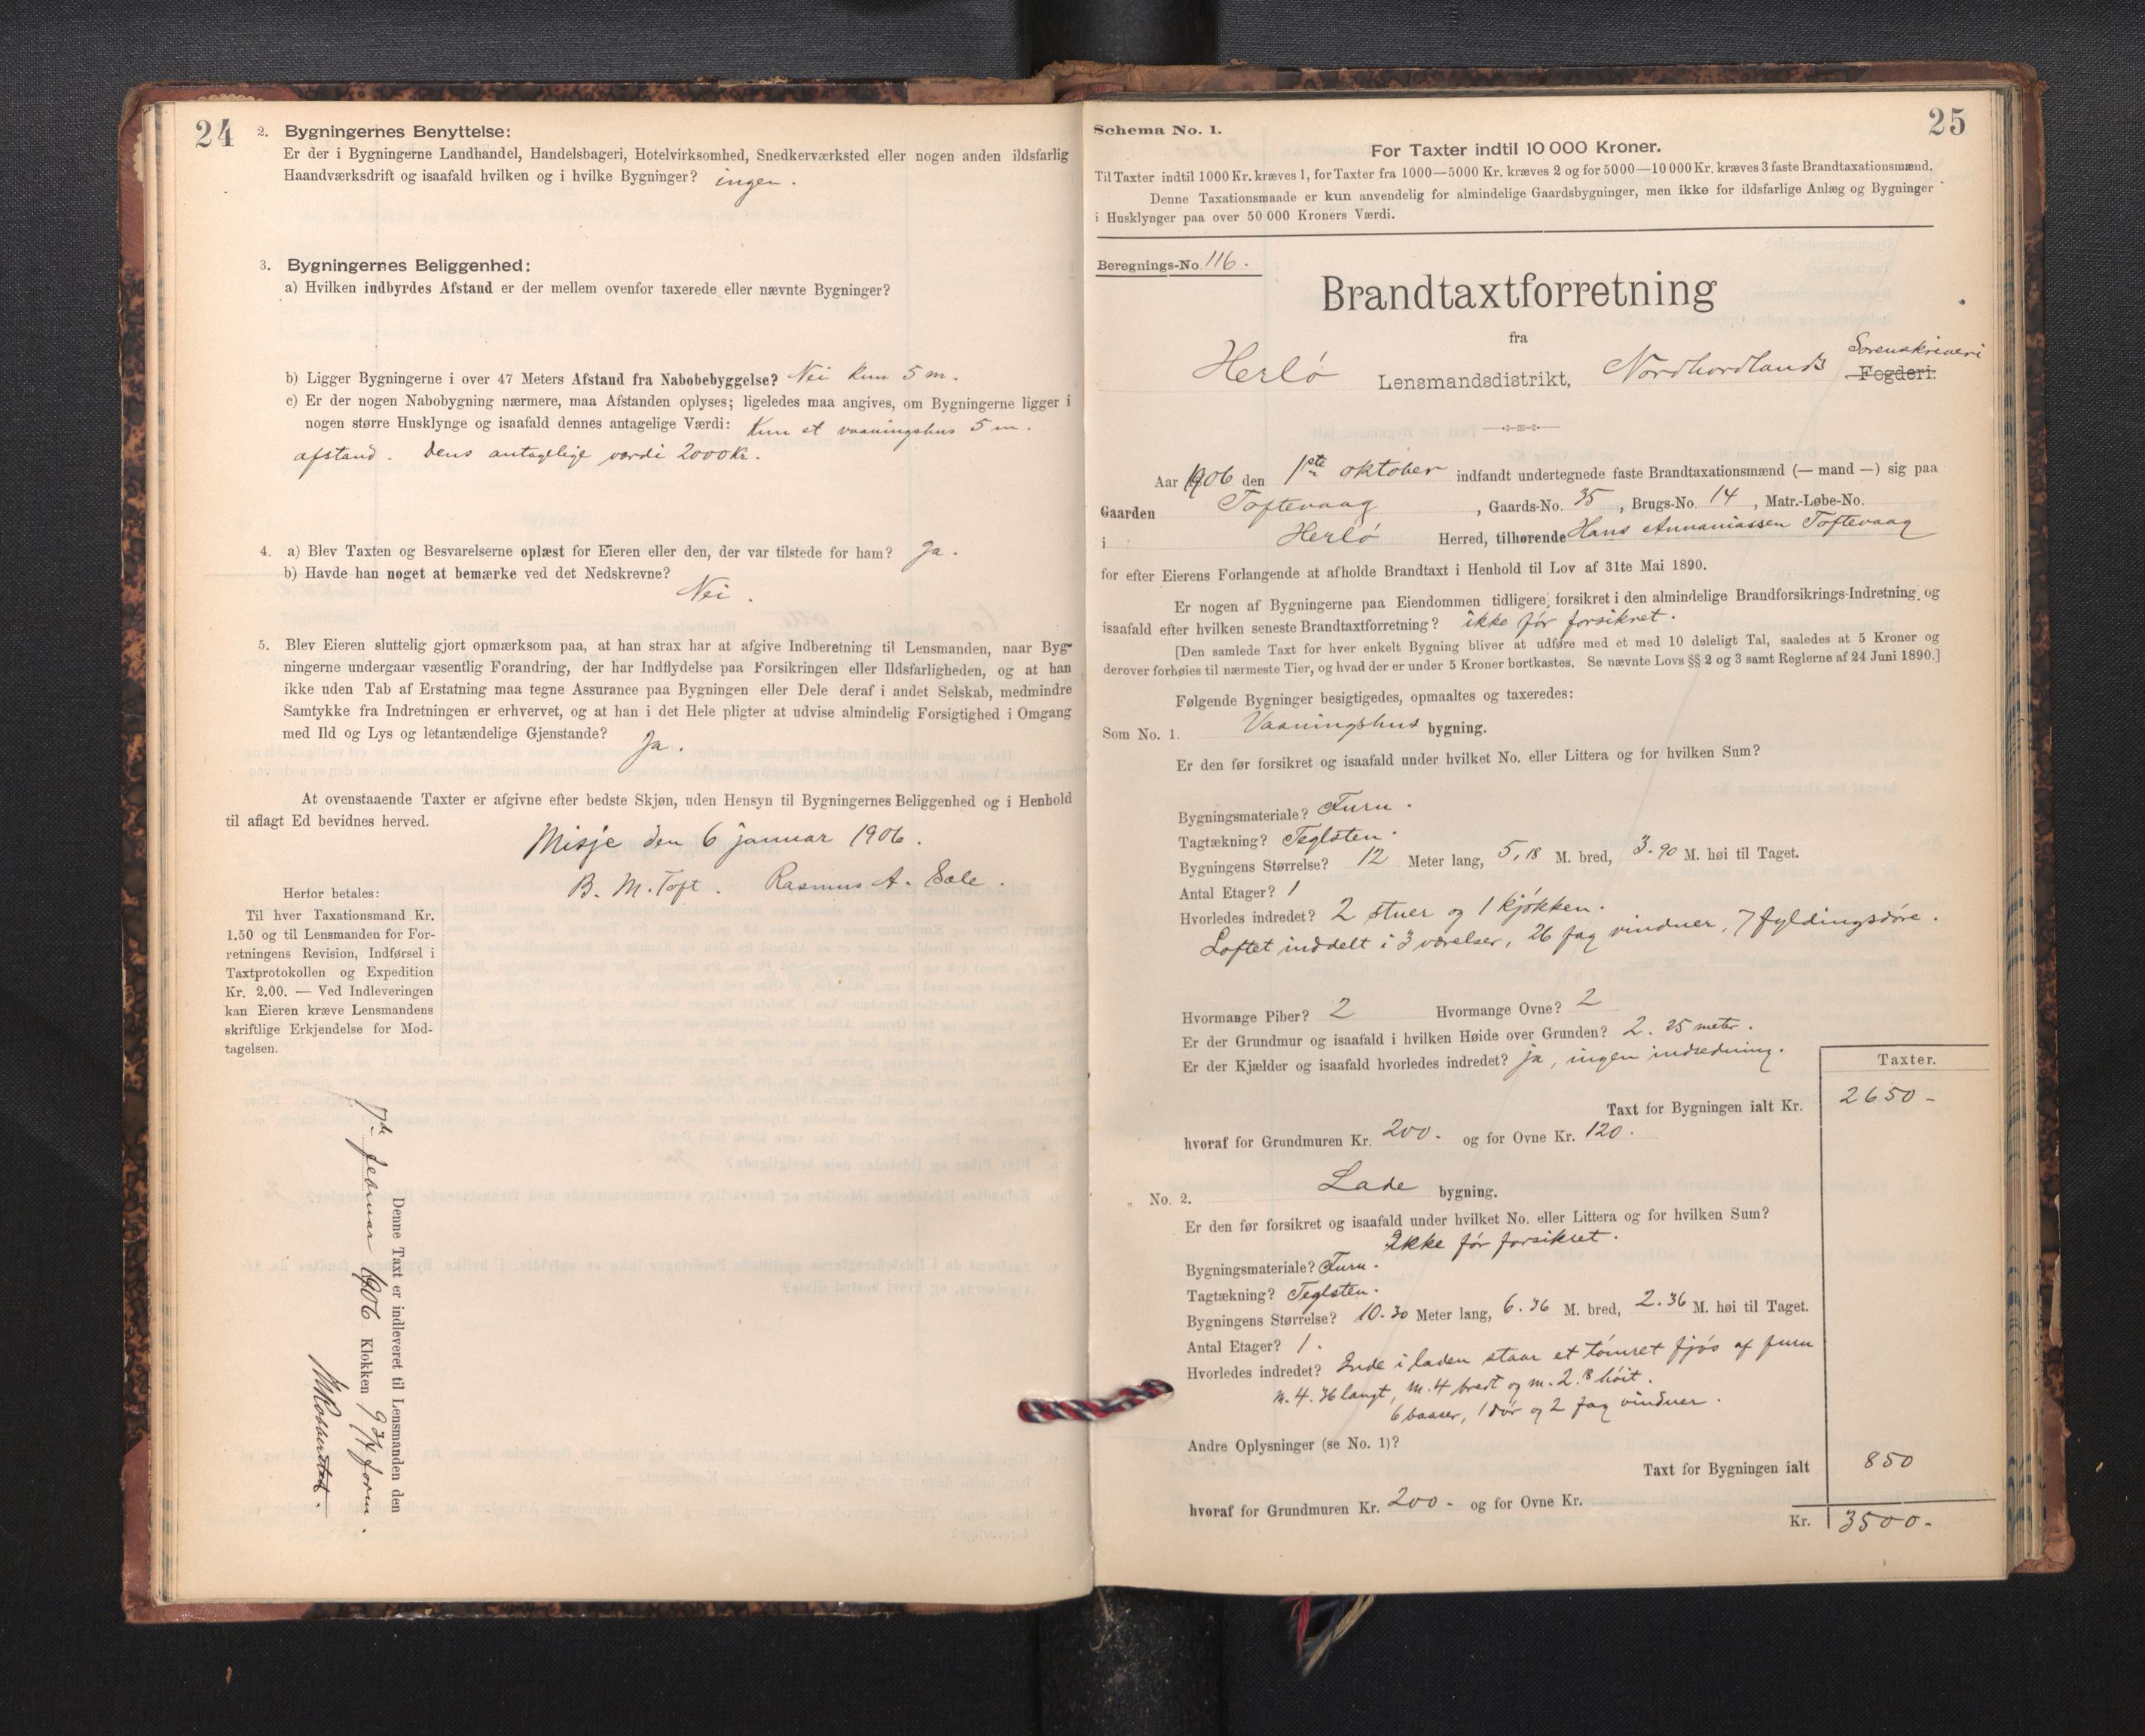 24
2. Bygningernes Benyttelse:
Er der i Bygningerne Landhandel, Handelsbageri, Hotelvirksomhed, Snedkerværksted eller nogen anden ildsfarlig
Haandværksdrift og isaafald hvilken og i hvilke Bygninger? ingen.
3. Bygningernes Beliggenhed:
a) Hvilken indbyrdes Afstand er der mellem ovenfor taxerede eller nævnte Bygninger?
b) Ligger Bygningerne i over 47 Meters Afstand fra Nabobebyggelse? Nei kun 5 m.
c) Er der nogen Nabobygning nærmere, maa Afstanden oplyses; ligeledes maa angives, om Bygningerne ligger i
nogen større Husklynge og isaafald dennes antagelige Værdi: Kun et vaaningshus 5 m.
afstand. Dens antagelige værdi 2000 kr.
4. a) Blev Taxten og Besvarelserne oplæst for Eieren eller den, der var tilstede for ham? Ja.
b) Havde han noget at bemærke ved det Nedskrevne?
Nei.
5. Blev Eieren sluttelig gjort opmærksom paa, at han strax har at afgive Indberetning til Lensmanden, naar Byg-
ningerne undergaar væsentlig Forandring, der har Indflydelse paa Forsikringen eller Ildsfarligheden, og at han
ikke uden Tab af Erstatning maa tegne Assurance paa Bygningen eller Dele deraf i andet Selskab, medmindre
Samtykke fra Indretningen er erhvervet, og at han i det Hele pligter at udvise almindelig Forsigtighed i Omgang
med Ild og Lys og letantændelige Gjenstande? Ja.
At ovenstaaende Taxter er afgivne efter bedste Skjøn, uden Hensyn til Bygningernes Beliggenhed og i Henhold
til aflagt Ed bevidnes herved.
Misje den 6 januar 1906.
B. M. Toft. Rasmus A. Sale.
Herfor betales:
Til hver Taxationsmand Kr.
1.50 og til Lensmanden for For-
retningens Revision, Indførsel i
Taxtprotokollen og Expedition
Kr. 2.00. — Ved Indleveringen
kan Eieren kræve Lensmandens
skriftlige Erkjendelse for Mod-
tagelsen.
Denne Taxt er indleveret til Lensmanden den
7de februar 1906 Klokken 9 3/4 form.
25
Schema No. 1.
For Taxter indtil 10 000 Kroner.
Til Taxter indtil 1000 Kr. kræves 1, for Taxter fra 1000—5000 Kr. kræves 2 og for 5000—10 000 Kr. kræves 3 faste Brandtaxationsmænd.
Denne Taxationsmaade er kun anvendelig for almindelige Gaardsbygninger, men ikke for ildsfarlige Anlæg og Bygninger
i Husklynger paa over 50 000 Kroners Værdi.
Beregnings-No 116.
Brandtaxtforretning
fra
Herlø Lensmandsdistrikt, Nordhordlands Sorenskriveri Fogderi.
Aar 1906 den 1ste oktober indfandt undertegnede faste Brandtaxationsmænd (— mand —) sig paa
Gaarden Toftevaag, Gaards-No. 35, Brugs-No. 14, Matr.-Løbe-No.
i Herlø Herred, tilhørende Hans Annaniassen Toftevaag
for efter Eierens Forlangende at afholde Brandtaxt i Henhold til Lov af 31te Mai 1890.
Er nogen af Bygningerne paa Eiendommen tidligere forsikret i den almindelige Brandforsikrings-Indretning og
isaafald efter hvilken seneste Brandtaxtforretning? ikke før forsikret.
[Den samlede Taxt for hver enkelt Bygning bliver at udføre med et med 10 deleligt Tal, saaledes at 5 Kroner og
derover forhøies til nærmeste Tier, og hvad der er under 5 Kroner bortkastes. Se nævnte Lovs §§ 2 og 3 samt Reglerne af 24 Juni 1890.]
Følgende Bygninger besigtigedes, opmaaltes og taxeredes:
Som No. 1. Vaaningshus bygning.
Er den før forsikret og isaafald under hvilket No. eller Littera og for hvilken Sum?
Bygningsmateriale? Furu.
Tagtækning? Teglsten.
Bygningens Størrelse? 12 Meter lang, 5,18 M. bred, 3.90 M. høi til Taget.
Antal Etager? 1
Hvorledes indredet? 2 stuer og 1 kjøkken.
Loftet inddelt i 3 værelser, 26 fag vinduer, 7 fyldingsdøre.
Hvormange Piber? 2 Hvormange Ovne? 2
Er der Grundmur og isaafald i hvilken Høide over Grunden? 2.25 meter.
Er der Kjælder og isaafald hvorledes indredet? ja, ingen indredning.
Taxter.
Taxt for Bygningen ialt Kr. 2650-
hvoraf for Grundmuren Kr. 200- og for Ovne Kr. 120.
„ No. 2. Lade bygning.
Er den før forsikret og isaafald under hvilket No. eller Littera og for hvilken Sum?
Ikke før forsikret.
Bygningsmateriale? Furu.
Tagtækning? Teglsten.
Bygningens Størrelse? 10.30 Meter lang, 6.36 M. bred, 2.36 M. høi til Taget.
Antal Etager? 1.
Hvorledes indredet? Inde i laden staar et tømret fjøs af furu
m. 4.36 langt, m. 4 bredt og m. 2.8 høit.
6 baaser, 1 dør og 2 fag vinduer.
Andre Oplysninger (se No. 1)?
Taxt for Bygningen ialt 850
hvoraf for Grundmuren Kr. 200- og for Ovne Kr.
Kr. 3500-